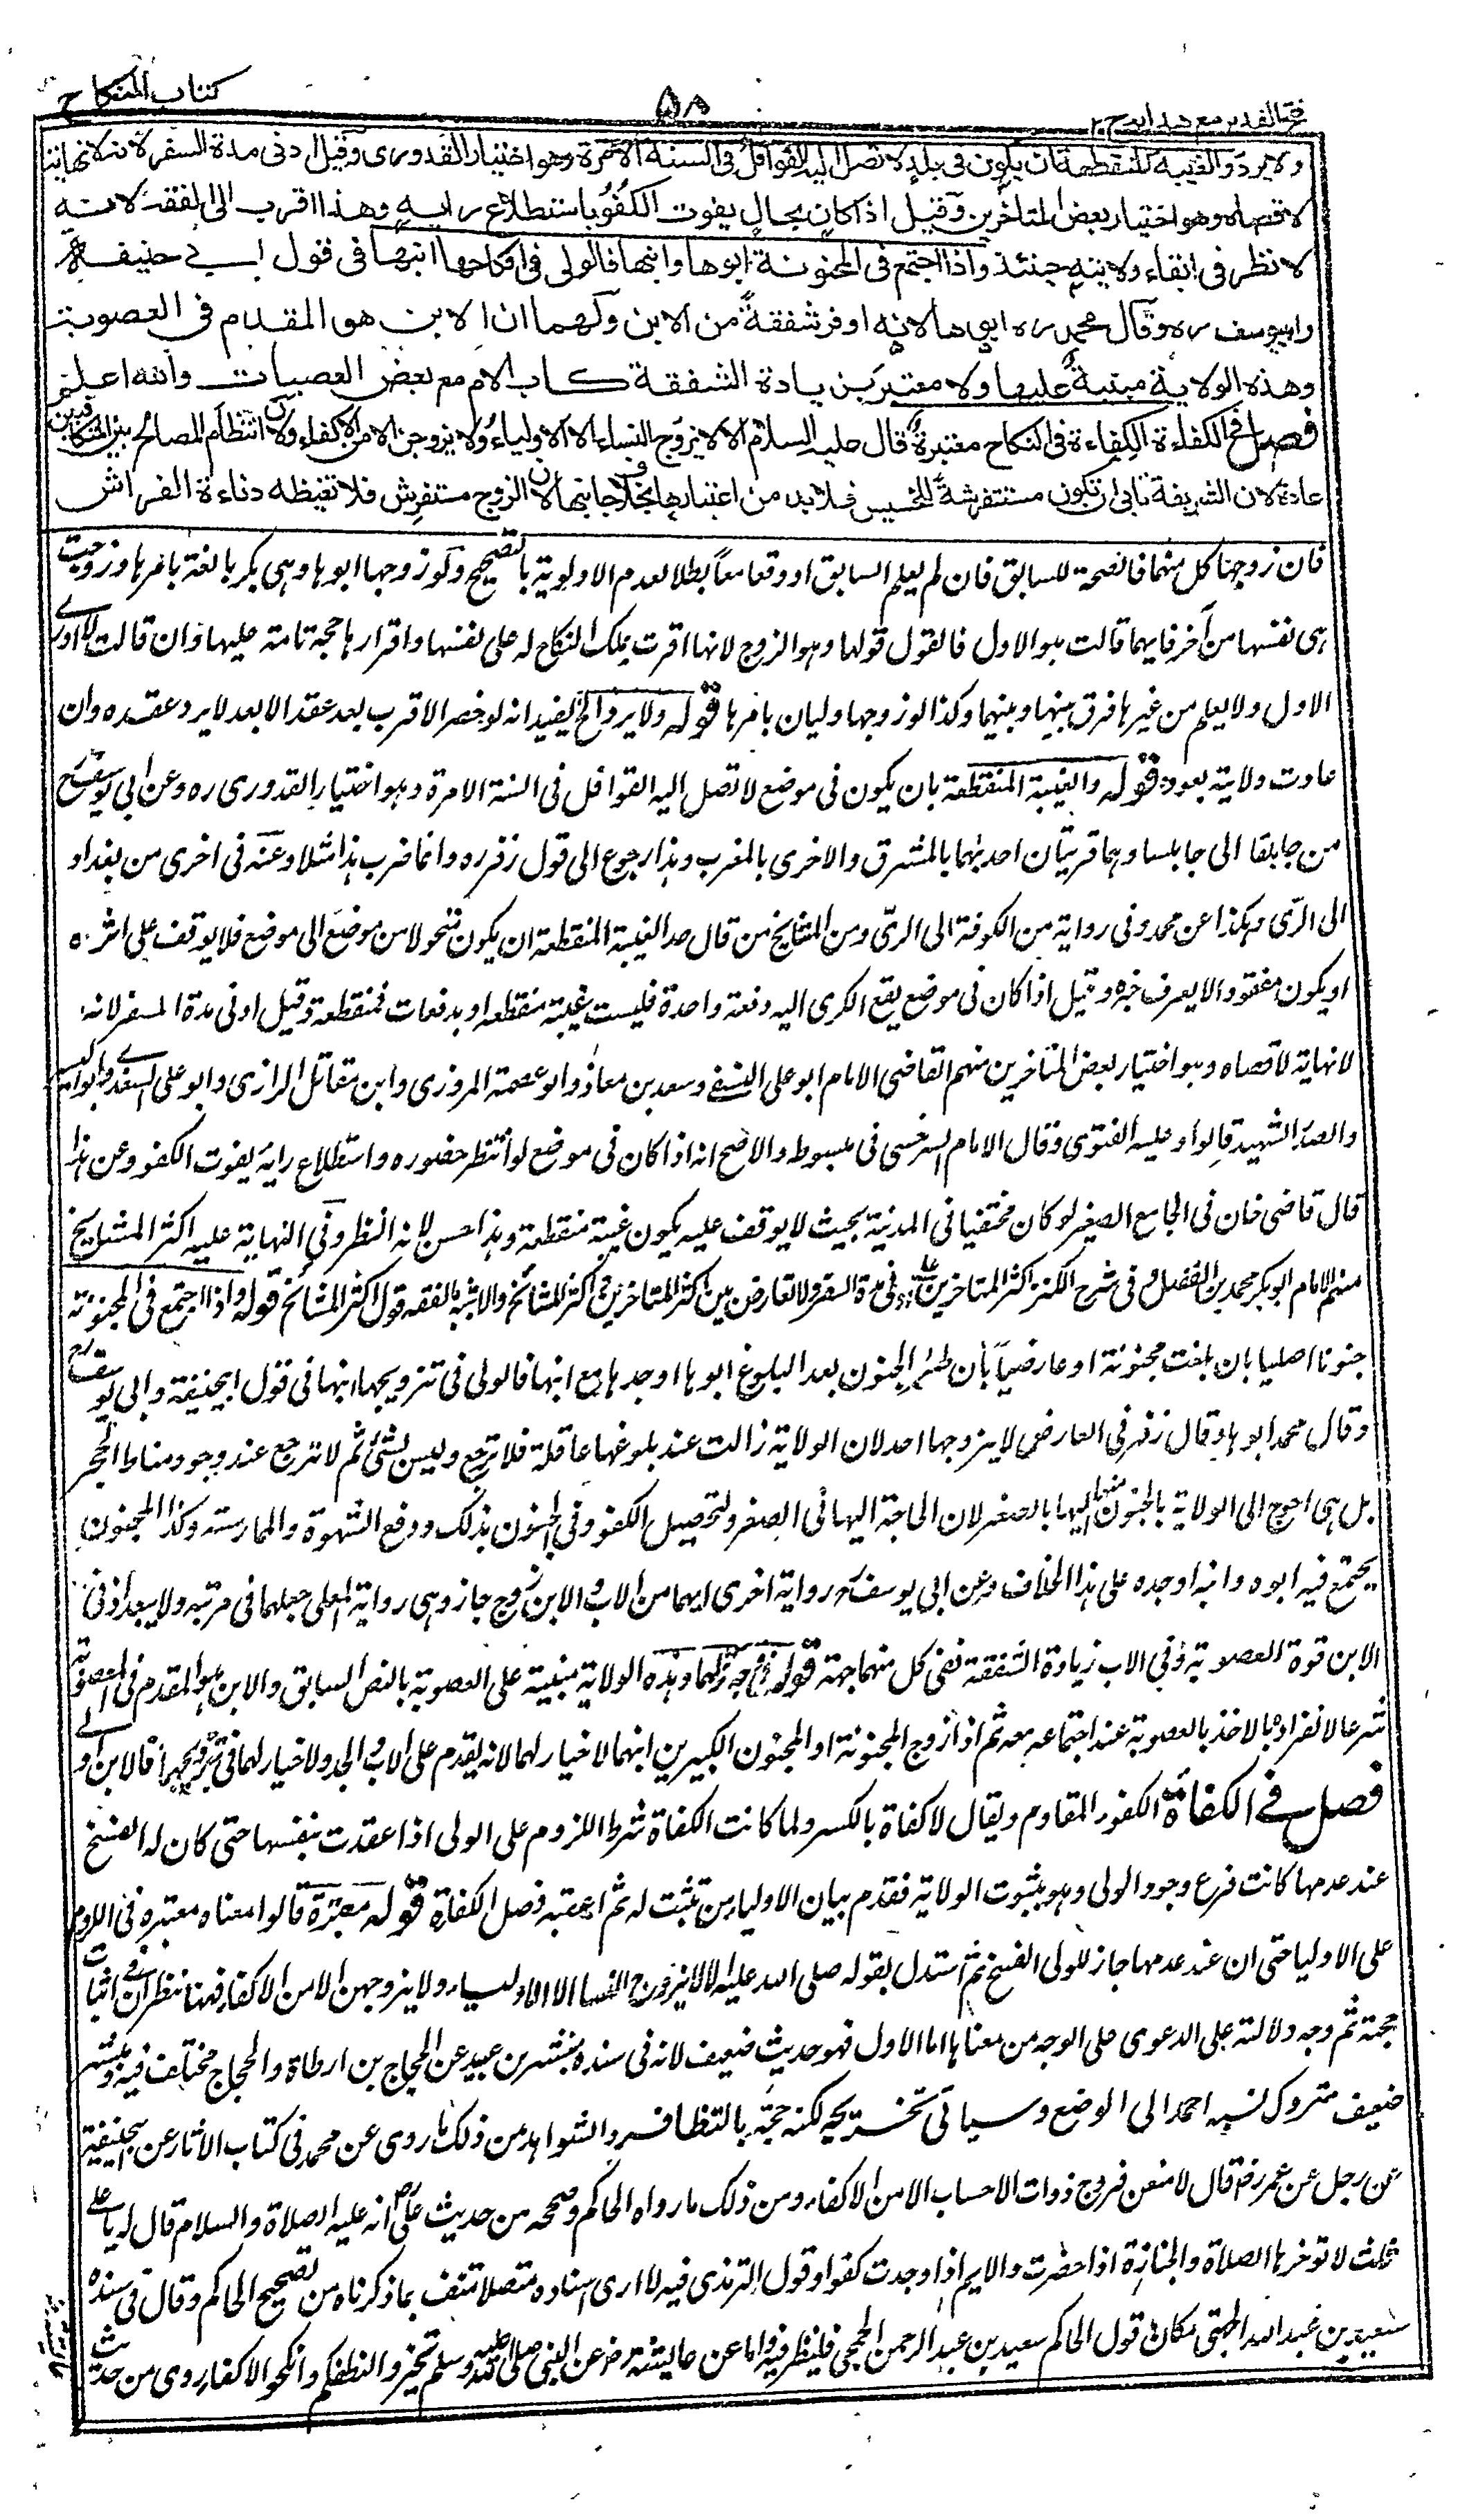 كتاب النكاح
٥٨
فتح القدير مع هدايه ج ٢
ولا يرد والغيبة المنقطعة ان يكون في بلد لا تصل اليه القوافل في السنة الا مرة وهو اختيار القدوري وقيل ادنى مدة السفر لانه لا نهاية
لاقصاه وهو اختيار بعض المتاخرين وقيل اذا كان بحال يفوت الكفؤ باستطلاع رايه وهذا اقرب الى الفقه لانه
لا نظر في ابقاء ولايته حينئذ واذا اجتمع في المجنونة ابوها وابنها فالولي في انكاحها ابنها في قول ابي حنيفة
وابيوسف ره وقال محمد ره ابوها لانه اوفر شفقة من الابن ولهما ان الابن هو المقدم في العصوبة
وهذه الولاية مبنية عليها ولا معتبر بزيادة الشفقة كاب الام مع بعض العصبات والله اعلم
فصل في الكفاءة الكفاءة في النكاح معتبرة قال عليه السلام الا لا يزوج النساء الا الاولياء ولا يزوجن الا من الاكفاء ولان انتظام المصالح بين المتكافيين
عادة لان الشريفة تابى ان تكون مستفرشة للخسيس فلا بد من اعتبارها بخلاف جانبها لان الزوج مستفرش فلا تغيظه دناءة الفراش
فان زوجها كل منهما فالصحة للسابق فان لم يعلم السابق او وقعا معاً بطلا لعدم الاولوية بالتصحيح ولو زوجها ابوها وهي بكر بالغة بامرها وزوجت
هي نفسها من آخر فايهما قالت هو الاول فالقول قولها وهو الزوج لانها اقرت بملك النكاح له على نفسها واقرارها حجة تامة عليها وان قالت لا ادري
الاول ولا يعلم من غيرها فرق بينها وبينهما وكذا لو زوجها وليان بامرها قوله ولا يرد الخ يفيد انه لو حضر الاقرب بعد عقد الابعد لا يرد عقده وان
عادت ولايته بعوده قوله والغيبة المنقطعة بان يكون في موضع لا تصل اليه القوافل في السنة الا مرة وهو اختيار القدوري ره وعن ابي يوسف رح
من جابلقا الى جابلسا وهما قريتان احدىهما بالمشرق والاخرى بالمغرب وهذا رجوع الى قول زفر ره وانما ضرب هذا مثلا وعنه في اخرى من بغداد
الى الرّى وهكذا عن محمد وفي رواية من الكوفة الى الرىّ ومن المشايخ من قال حد الغيبة المنقطعة ان يكون متحولا من موضع الى موضع فلا يوقف على اثره
او يكون مفقودا لا يعرف خبره وقيل اذا كان في موضع يقع الكرى اليه دفعة واحدة فليست غيبة منقطعة او بدفعات فمنقطعة وقيل ادنى مدة السفر لانه
لا نهاية لاقصاه وهو اختيار بعض المتاخرين منهم القاضي الامام ابو على النسفي وسعد بن معاذ وابو عصمة المروزى وابن مقاتل الرازى وابو على السغدي وابو اليسر
والصدر الشهيد قالوا وعليه الفتوى وقال الامام السرخسي في مبسوطه والاصح انه اذا كان في موضع لو انتظر حضوره واستطلاع رايه يفوت الكفو وعن هذا
قال قاضي خان في الجامع الصغير لو كان مختفيا في المدينة بحيث لا يوقف عليه يكون غيبة منقطعة وهذا حسن لانه النظر وفي النهاية عليه اكثر المشايخ
منهم الامام ابو بكر محمد بن الفضل وفي شرح الكنز اكثر المتاخرين على مدة السفر ولا تعارض بين اكثر المتاخرين واكثر المشائخ والاشبه بالفقه قول اكثر المشائخ قوله واذا اجتمع في المجنونة
جنونا اصليا بان بلغت مجنونة او عارضيا بأن طرء الجنون بعد البلوغ ابوها او جدها مع ابنها فالولى فى تزويجها ابنها فى قول ابيحنيفة وابى يوسف رح
وقال محمد ابوها وقال زفر فى العارض لا يزوجها احد لان الولاية زالت عند بلوغها عاقلة فلا ترجع وليس بشئ ثم لا ترجع عند وجود مناط الحجر
بل هى احوج الى الولاية بالجنون منها اليها بالصغر لان الحاجة اليها فى الصغر لتحصيل الكفو وفى الجنون بذلك ودفع الشهوة والممارسة وكذا المجنون
يجتمع فيه ابوه وابنه او جده على هذا الخلاف وعن ابى يوسف رح رواية اخرى ايهما من الاب والابن زوج جاز وهى رواية المعلى جعلهما فى مرتبة ولا يبعد اذ فى
الابن قوة العصوبة وفى الاب زيادة الشفقة ففى كل منهما جهة قوله ولهما وهذه الولاية مبنية على العصوبة بالنص السابق والابن هو المقدم فى العصوبة
شرعا لانفراده بالاخذ بالعصوبة عند اجتماعه معه ثم اذا زوج المجنونة او المجنون الكبيرين ابنهما لا خيار لهما لانه يقدم على الاب والجد ولا خيار لهما فى تزويجهما فالابن اولى
فصل في الكفاءة الكفو المقاوم ويقال لا كفاة بالكسر ولما كانت الكفاة شرط اللزوم على الولى اذا عقدت بنفسها حتى كان له الفسخ
عند عدمها كانت فرع وجود الولى وهو بثبوت الولاية فقدم بيان الاولياء ومن تثبت له ثم اعقبه فصل الكفاءة قوله معتبرة قالوا معناه معتبرة فى اللزوم
على الاوليا حتى ان عند عدمها جاز للولى الفسخ ثم استدل بقوله صلى الله عليه الا لا يزوج النسا الا الاولياء ولا يزوجن الا من الاكفاء فهنا نظران فى اثبات
حجة ثم وجه دلالته على الدعوى على الوجه من معناها اما الاول فهو حديث ضعيف لانه فى سنده مبشر بن عبيد عن الحجاج بن ارطاة والحجاج مختلف فيه ومبشر
ضعيف متروك نسبه احمد الى الوضع وسياتى تخريجه لكنه حجة بالتظافر والشواهد من ذلك ما روى عن محمد فى كتاب الاثار عن ابيحنيفة
عن رجل عن عمر رض قال لامنعن فروج ذوات الاحساب الا من الاكفاء ومن ذلك ما رواه الحاكم وصححه من حديث على رض انه عليه الصلاة والسلام قال له يا على
ثلث لا تؤخرها الصلاة والجنازة اذا حضرت والايم اذا وجدت كفوا وقول الترمذى فيه لا ارى اسناده متصلا منتف بما ذكرناه من تصحيح الحاكم وقال فى سنده
سعيد بن عبد الله الجهنى مكان قول الحاكم سعيد بن عبد الرحمن الجمحى فلينظر فيه واما عن عايشة رض عن النبى صلى الله عليه وسلم تخيروا لنطفكم وانكحوا الاكفاء روى من حديث